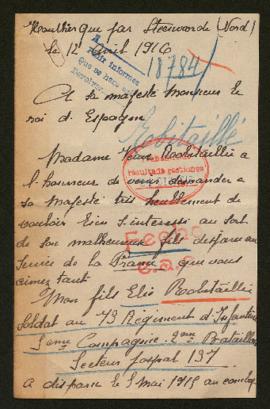 par Steenvoorde (Nord)
le 12 Avril 1916
18784
A sa majesté monsieur le
roi d'Espagne
Robitaillé
Madame Veuve Robitaillé a
l'honneur de venir demander a
sa Majesté très humblement de
vouloir bien s'interessé au sort
de son malheureux fils disparu au
service de la France que vous
aimez tant
Fecho
Mon fils Elie Robitaillé
soldat au 73 Régiment d'Infanterie
5eme Compagnie 2me Bataillon
Secteur postal 137
a disparu le 5 mai 1915 au